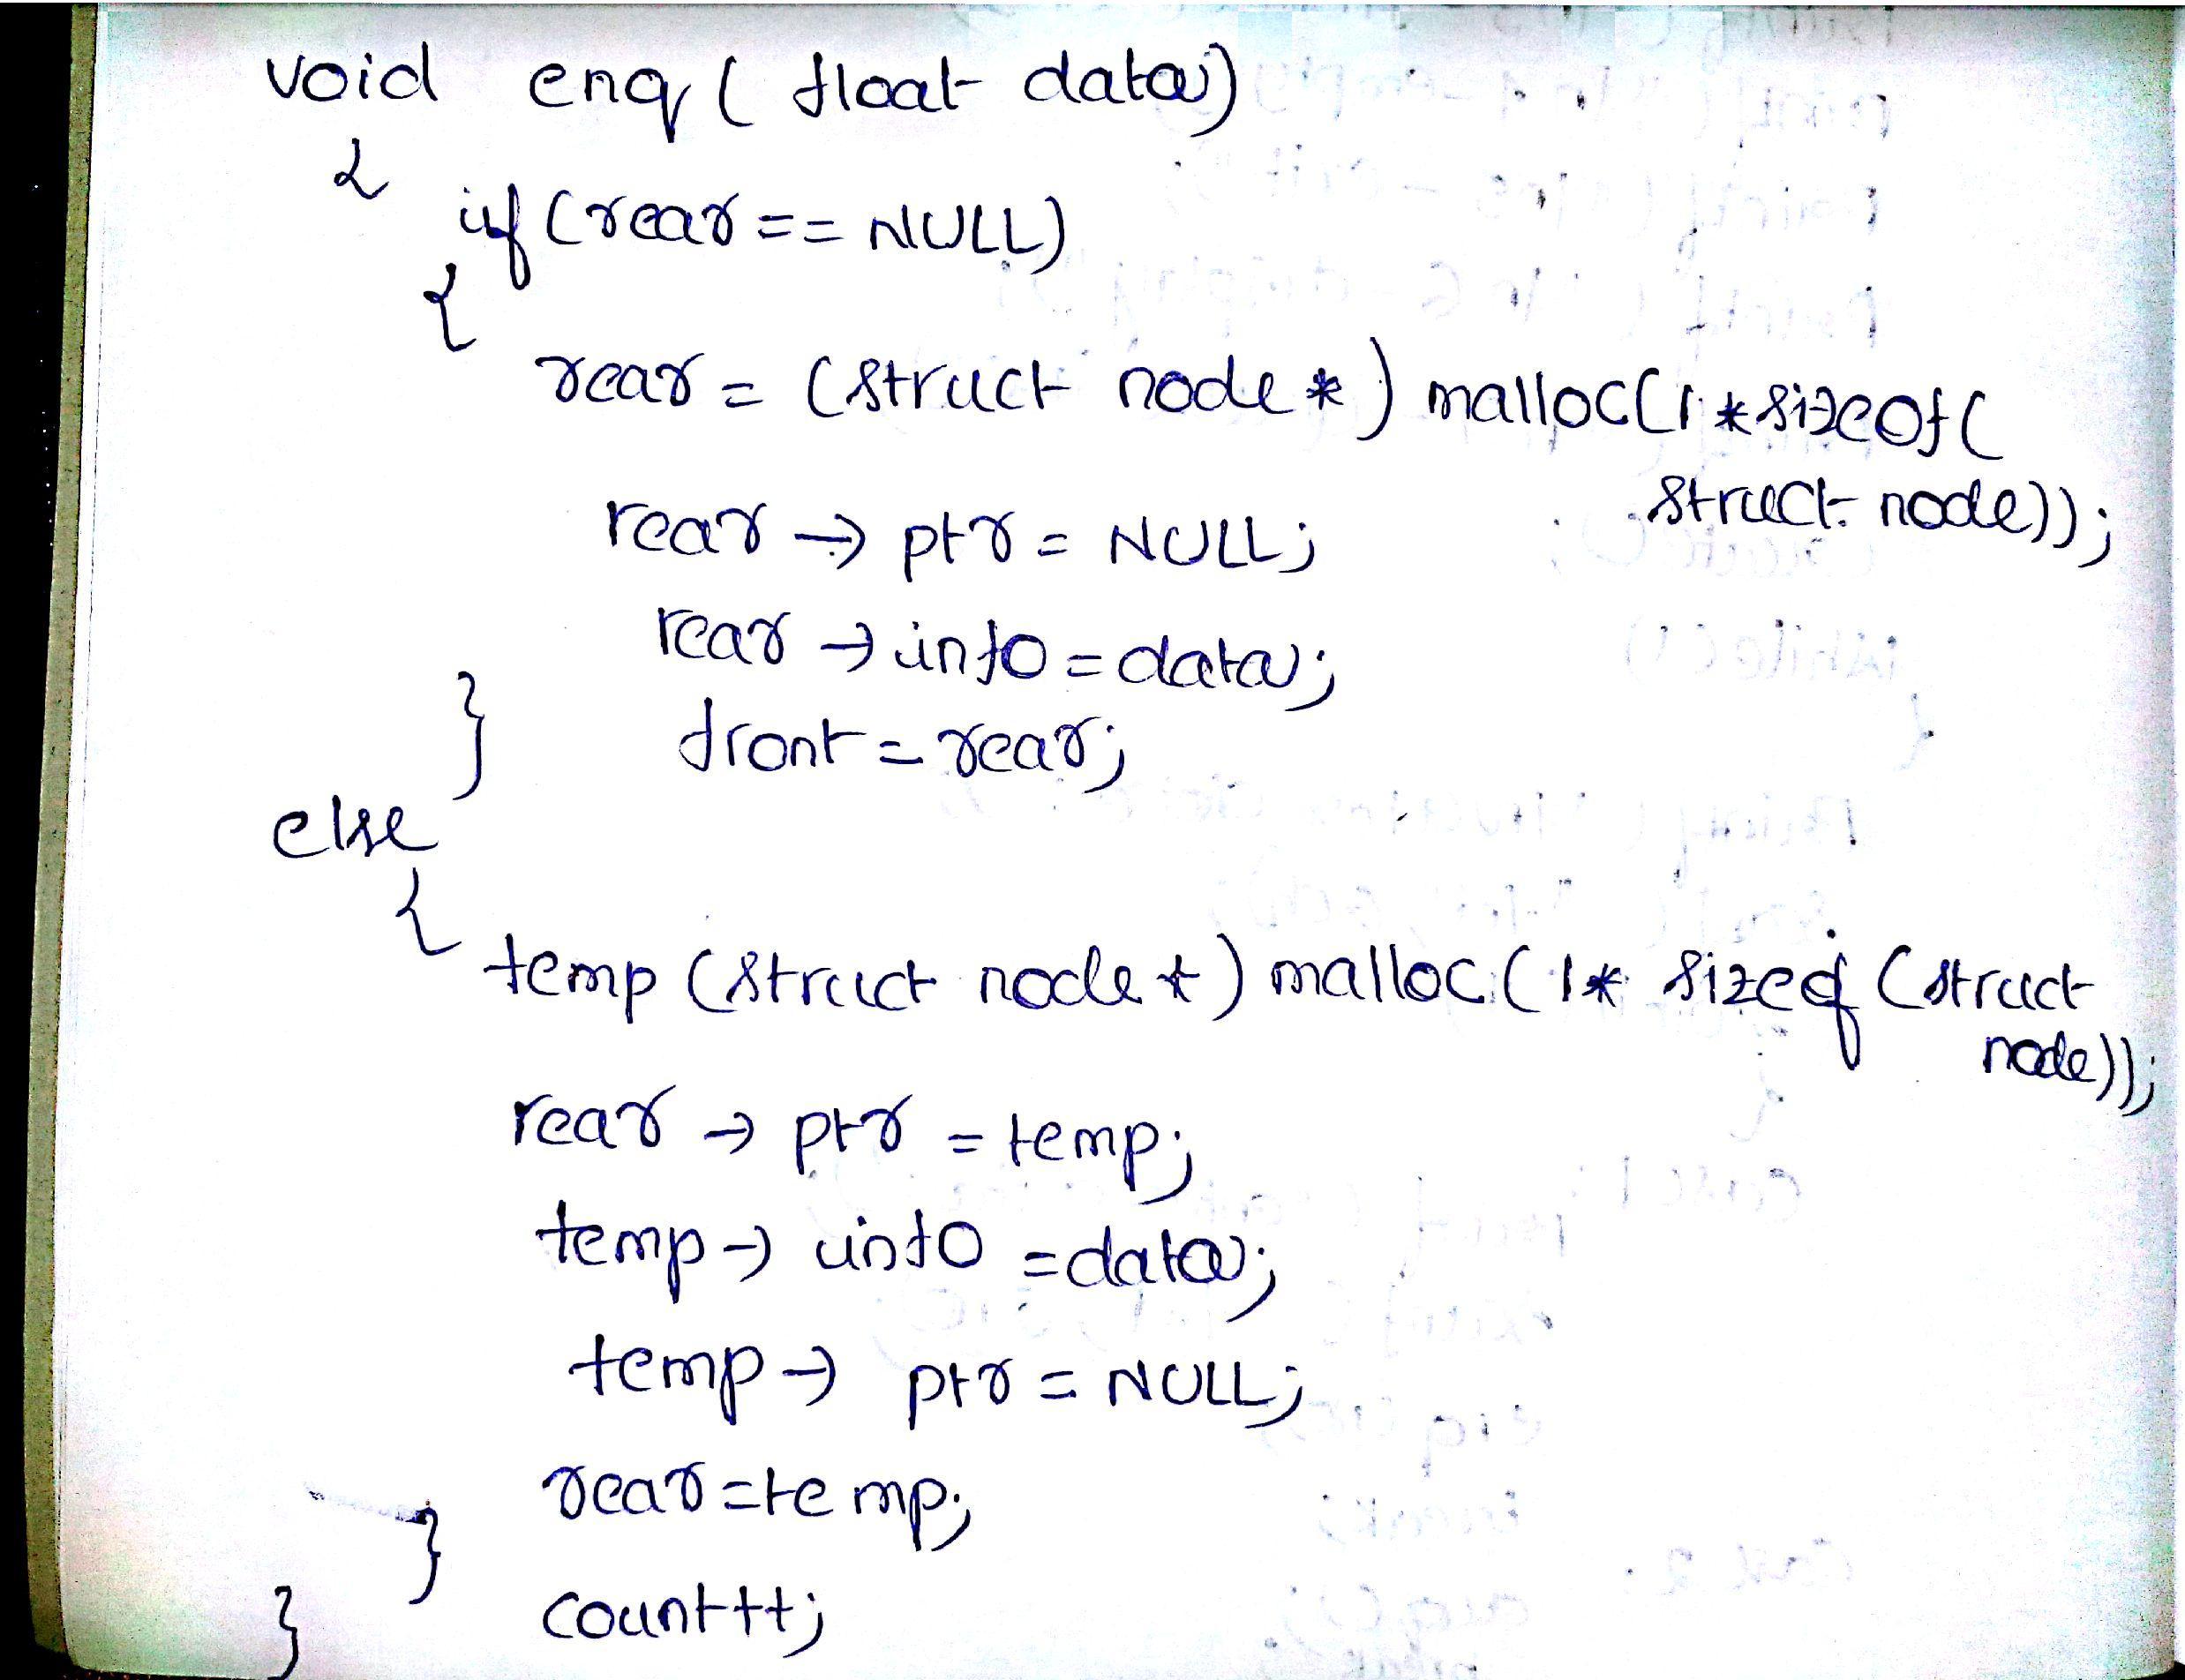 void enq ( float data)
{
if (rear == NULL)
{
rear = (struct node *) malloc(1 * sizeof(
struct node));
rear → ptr = NULL;
rear → info = data;
} front = rear;
else
{
temp (struct node *) malloc (1* sizeof (struct
node));
rear → ptr = temp;
temp → info = data;
temp → ptr = NULL;
rear = temp;
}
} count++;